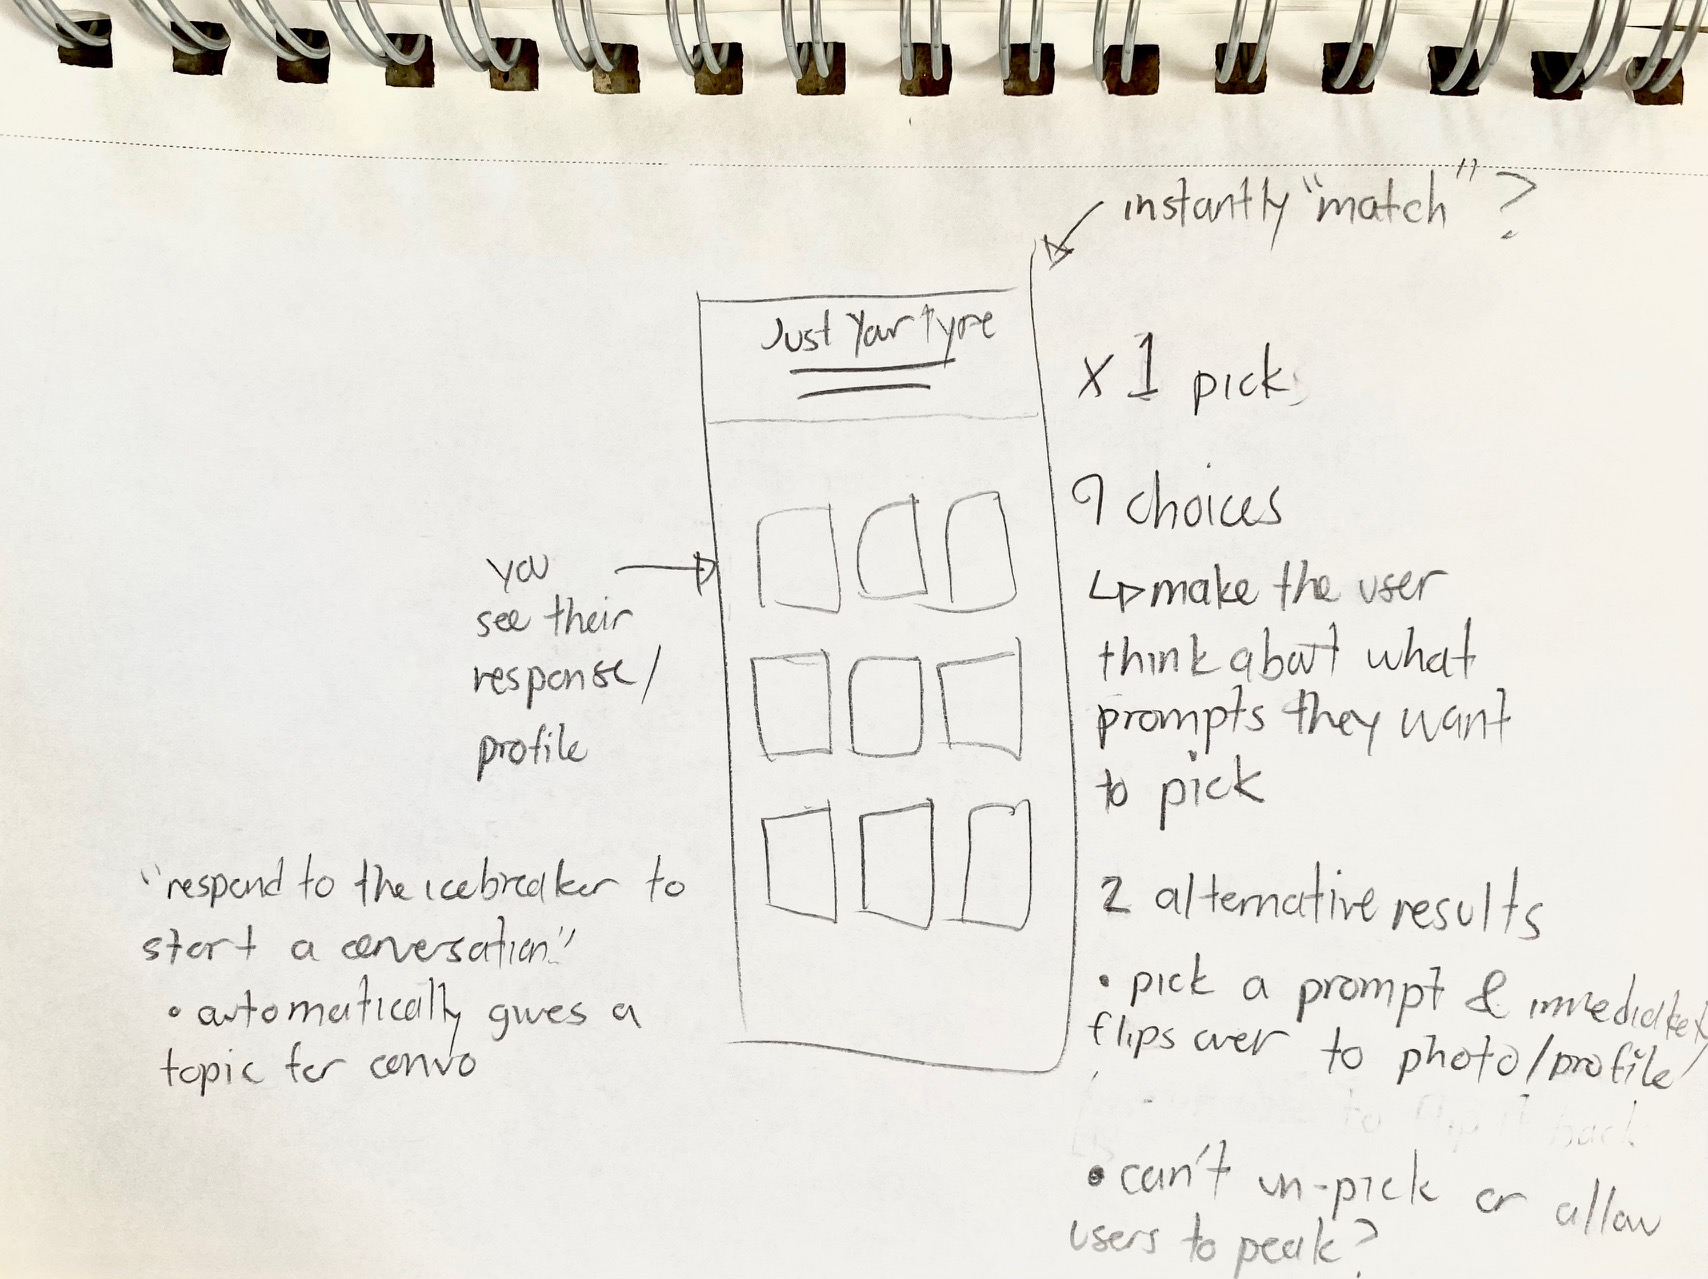 instantly "match" ?
Just Your Type
x 1 pick
9 choices
make the user
think about what
prompts they want
to pick
2 alternative results
• pick a prompt & immediately
flips over to photo/profile
to flip it back
• can't un-pick or allow
users to peak?
you
see their
response/
profile
"respond to the icebreaker to
start a conversation"
• automatically gives a
topic for convo